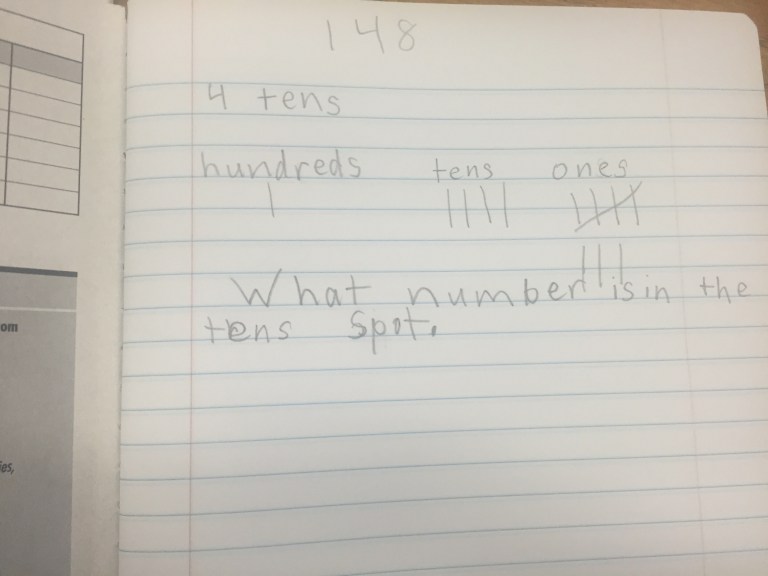 148
4 tens
hundreds tens ones
What number is in the
tens spot.
om
ies,